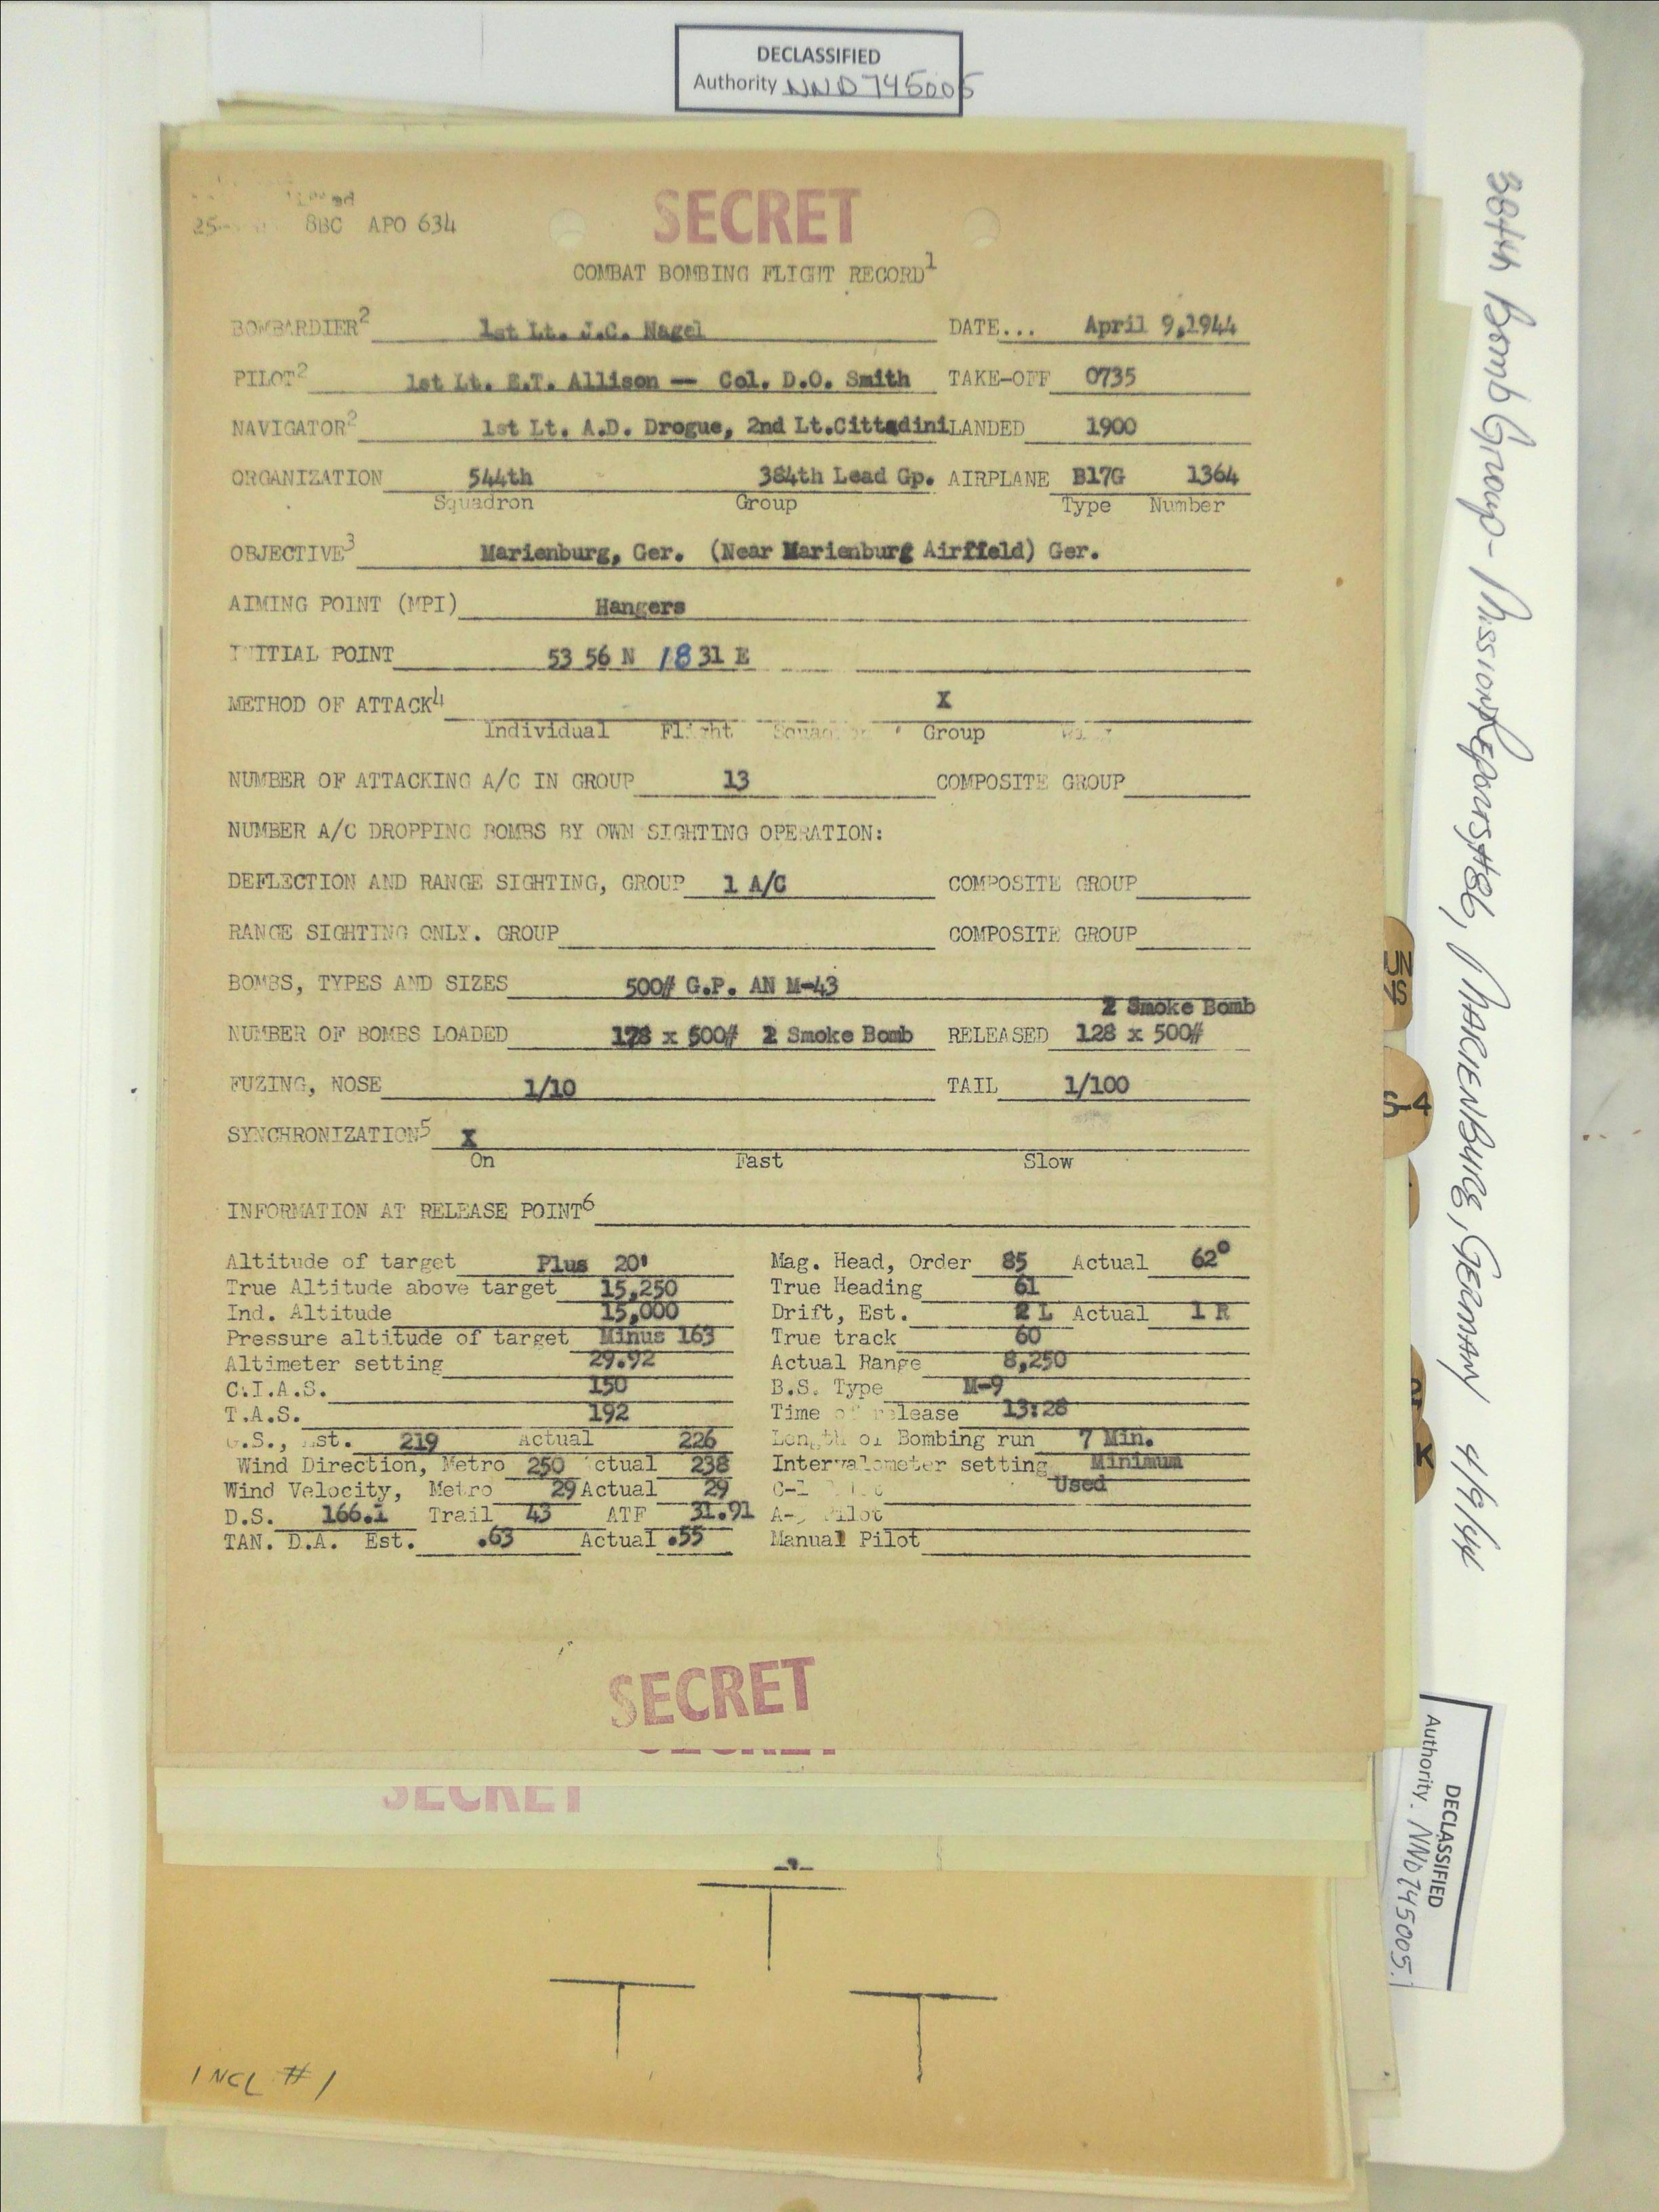 DECLASSIFIED
Authority NND 745005
8BC APO 634
SECRET
COMBAT BOMBING FLIGHT RECORD1
BOMBARDIER2 1st Lt. J.C. Nagel DATE... April 9,1944
PILOT2 1st Lt. E.T. Allison -- Col. D.O. Smith TAKE-OFF 0735
NAVIGATOR2 1st Lt. A.D. Drogue, 2nd Lt.Cittadini LANDED 1900
ORGANIZATION 544th 384th Lead Gp. AIRPLANE B17G 1364
Squadron Group Type Number
OBJECTIVE3 Marienburg, Ger. (Near Marienburg Airfield) Ger.
AIMING POINT (MPI) Hangers
INITIAL POINT 53 56 N 18 31 E
METHOD OF ATTACK4 X
Individual Flight Squadron Group Wing
NUMBER OF ATTACKING A/C IN GROUP 13 COMPOSITE GROUP
NUMBER A/C DROPPING BOMBS BY OWN SIGHTING OPERATION:
DEFLECTION AND RANGE SIGHTING, GROUP 1 A/C COMPOSITE GROUP
RANGE SIGHTING ONLY. GROUP COMPOSITE GROUP
BOMBS, TYPES AND SIZES 500# G.P. AN M-43
2 Smoke Bomb
NUMBER OF BOMBS LOADED 178 x 500# 2 Smoke Bomb RELEASED 128 x 500#
FUZING, NOSE 1/10 TAIL 1/100
SYNCHRONIZATION5 X
On Fast Slow
INFORMATION AT RELEASE POINT6
Altitude of target Plus 20' Mag. Head, Order 85 Actual 62°
True Altitude above target 15,250 True Heading 61
Ind. Altitude 15,000 Drift, Est. 2 L Actual 1 R
Pressure altitude of target Minus 163 True track 60
Altimeter setting 29.92 Actual Range 8,250
C.I.A.S. 150 B.S. Type M-9
T.A.S. 192 Time of release 13:28
G.S., Est. 219 Actual 226 Length of Bombing run 7 Min.
Wind Direction, Metro 250 Actual 238 Intervalometer setting Minimum
Wind Velocity, Metro 29 Actual 29 C-1 Pilot Used
D.S. 166.1 Trail 43 ATF 31.91 A-5 Pilot
TAN. D.A. Est. .63 Actual .55 Manual Pilot
SECRET
SECRET
INCL #1
384th Bomb Group - Mission Reports #86, MARIENBURG, GERMANY 4/9/44
DECLASSIFIED
Authority. NND 745005
S-4
K